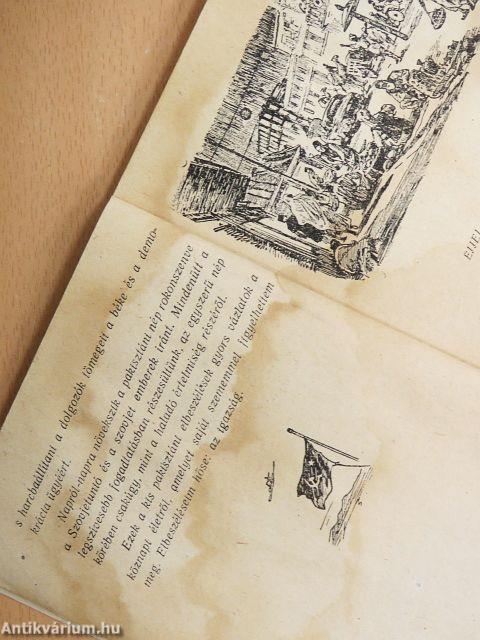 s harcbaállítani a dolgozók tömegeit a béke és a demo-
krácia ügyéért.
Napról-napra növekszik a pakisztáni nép rokonszenve
a Szovjetunió és a szovjet emberek iránt. Mindenütt a
legszívesebb fogadtatásban részesültünk, az egyszerű nép
körében csakúgy, mint a haladó értelmiség részéről.
Ezek a kis pakisztáni elbeszélések gyors vázlatok a
köznapi életről, amelyet saját szememmel figyelhettem
meg. Elbeszéléseim hőse: az igazság.
Antikvárium.hu